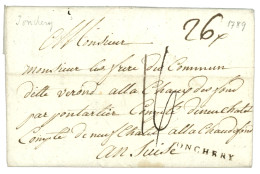 Jonchery
26
1789
Monsieur
monsieur les frere du Commun
dille verond alla Chaux defond
par pontarlier Comté de neuchatel
Comté de neufchatel alla Chaudefond
en Suisse
JONCHERY